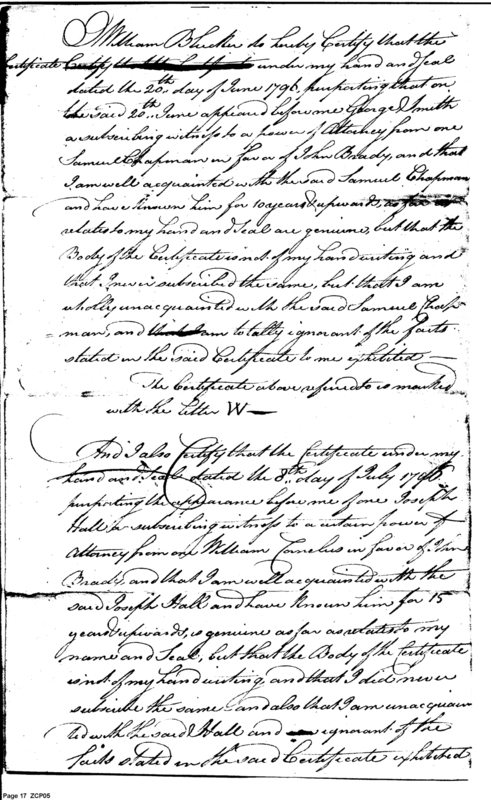 I William Blucker do hereby Certify that the
Certificate Certify that the Certificate under my hand and Seal
dated the 20th. day of June 1796, purporting that on
the said 20th. June appeared before me George Smith
a subscribing witness to a power of Attorney from one
Samuel Chapman in favor of John Brady, and that
I am well acquainted with the said Samuel Chapman
and have known him for 10 years & upwards, as far as
relates to my hand and Seal are genuine, but that the
Body of the Certificate is not of my handwriting and
that I never subscribed the same, but that I am
wholly unacquainted with the said Samuel Chap-
man, and that I am totally ignorant of the facts
stated in the said Certificate to me exhibited —
The Certificate above refered to is marked
with the letter W —
And I also Certify that the Certificate under my
hand and Seal dated the 8th. day of July 1796
purporting the appearance before me of one Joseph
Hall a subscribing witness to a certain power of
Attorney from one William Cornelius in favor of Jno
Brady, and that I am well acquainted with the
said Joseph Hall and have known him for 15
years & upwards, is genuine as far as relates to my
name and Seal, but that the Body of the Certificate
is not of my handwriting, and that I did never
subscribe the same - and also that I am unacquain
ted with the said Hall and ignorant of the
facts stated in the said Certificate exhibited
Page 17 ZCP05